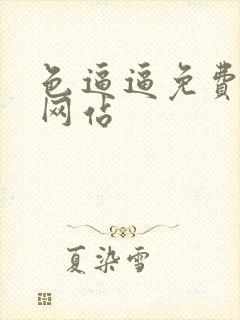 色逼逼免费
网站
夏染雪